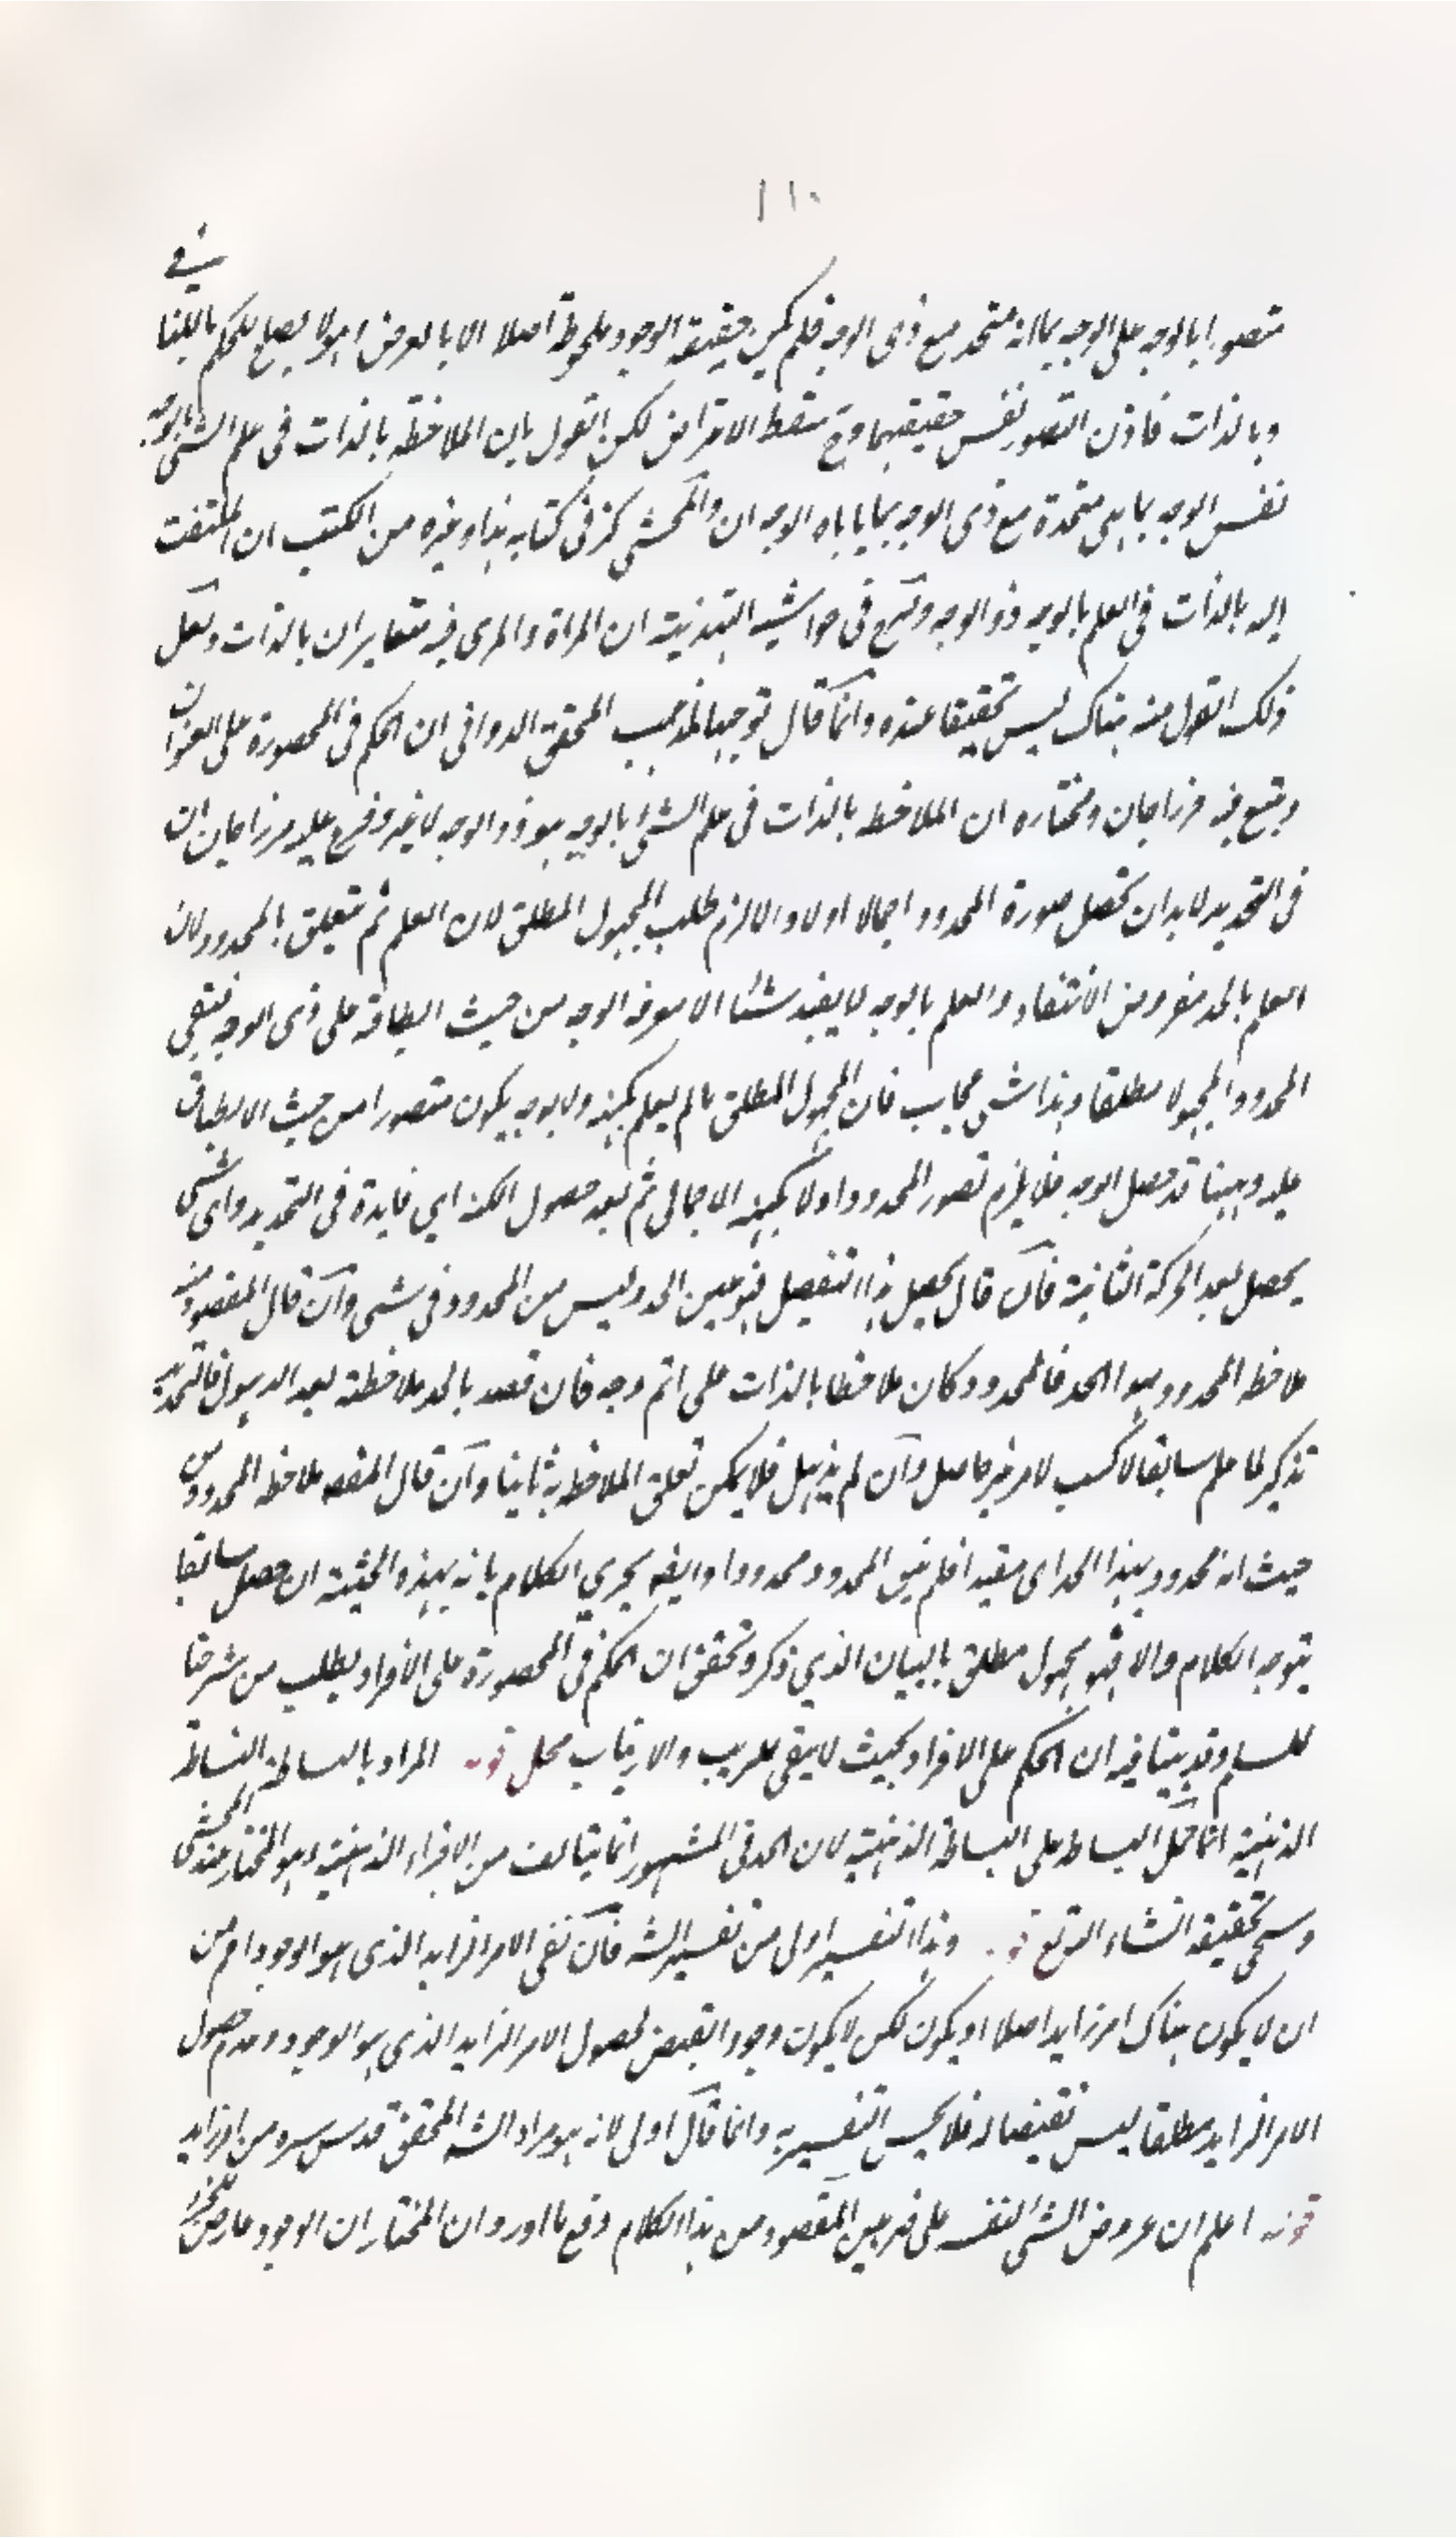 ١١٠
في
متصورا بالوجه على الوجه بما انه متحد مع ذى الوجه فلم يكن حقيقة الوجود ملحوظة اصلا الا بالعرض وهو لا يصلح للحكم بالبنا
وبالذات فاذن التصور نفس حقيقتها وح سقط الاعتراض لكن القول بان الملاحظة بالذات فى علم الشئ بالوجه
نفس الوجه بما هى متحدة مع ذى الوجه مما ياباه الوجدان والمحشى كرر فى كتابه هذا وغيره من الكتب ان الملتفت
اليه بالذات فى العلم بالوجه ذو الوجه وصرح فى حواشيه التهذيبية ان المراة والمرى فيه متغايران بالذات ولعل
ذلك القول منه هناك ليس تحقيقا عنده وانما قال توجيها لمذهب المحقق الدوانى ان الحكم فى المحصورة على العنوان
وتبع فيه مرزاجان ومختاره ان الملاحظ بالذات فى علم الشئ بالوجه هو ذو الوجه لا غير وفرع عليه مرزاجان ان
فى التحديد لابد ان تحصل صورة المحدود اجمالا اولا والا لزم طلب المجهول المطلق لان العلم ثم يتعلق بالمحدود لان
العلم بالحد مفروض الانتفاء والعلم بالوجه لا يفيد شيئا الا معرفة الوجه من حيث انطباقه على ذى الوجه فبقى
المحدود المجهولا مطلقا وهذا شى عجاب فان المجهول المطلق ما لم يعلم بكنهه ولا بوجه يكون متصورا من حيث الانطباق
عليه وههنا قد حصل الوجه فلا يلزم تصور المحدود اولا بكنهه الاجمالى ثم بعد حصول الكنه اي فايدة فى التحديد واى شى
يحصل بعد الحركة الثانية فان قال يحصل هذا التفصيل فهو عين الحد وليس من المحدود فى شى وان قال المقصود منه
ملاحظة المحدود وهو الحد فالمحدود كان ملاحظا بالذات على اتم وجه فان قصد بالحد ملاحظته بعد الذهول فالتحديد
تذكير لما علم سابقا لا كسب لامر غير حاصل وان لم يذهل فلا يمكن تعلق الملاحظة به ثانيا وان قال المقصد ملاحظة المحدود من
حيث انه محدود بهذا الحد اى مقيدا فلم يبق المحدود محدودا وايضا يجري الكلام بانه بهذه الحيثية ان حصل سابقا
يتوجه الكلام والا فهو مجهول مطلق بالبيان الذي ذكر وتحقق ان الحكم فى المحصورة على الافراد يطلب من شرحنا
للسلم وقد بينا فيه ان الحكم على الافراد بحيث لا يبقى للريب والارتياب محل قوله المراد بالبساطة البساطة
الذهنية انما حمل البساطة على البساطة الذهنية لان الحد فى المشهور انما يتالف من الاجزاء الذهنية وهو المختار عند المحشى
وسيجى تحقيقه انشاء الله تع قوله وهذا التفسير اولى من تفسير الشه فان نفى الامر الزايد الذى هو الوجود اعم من
ان لا يكون هناك امر زايد اصلا او يكون لكن لا يكون وجودا نقيض لحصول الامر الزايد الذى هو الوجود وعدم حصول
الامر الزايد مطلقا ليس نقيضا له فلا يحسن التفسير به وانما قال اولى لانه هو مراد الشه المحقق قدس سره من امر زايد
قوله اعلم ان عروض الشئ لنفسه على ضربين المقصود من هذا الكلام دفع ما اورد ان المختار ان الوجود عارض